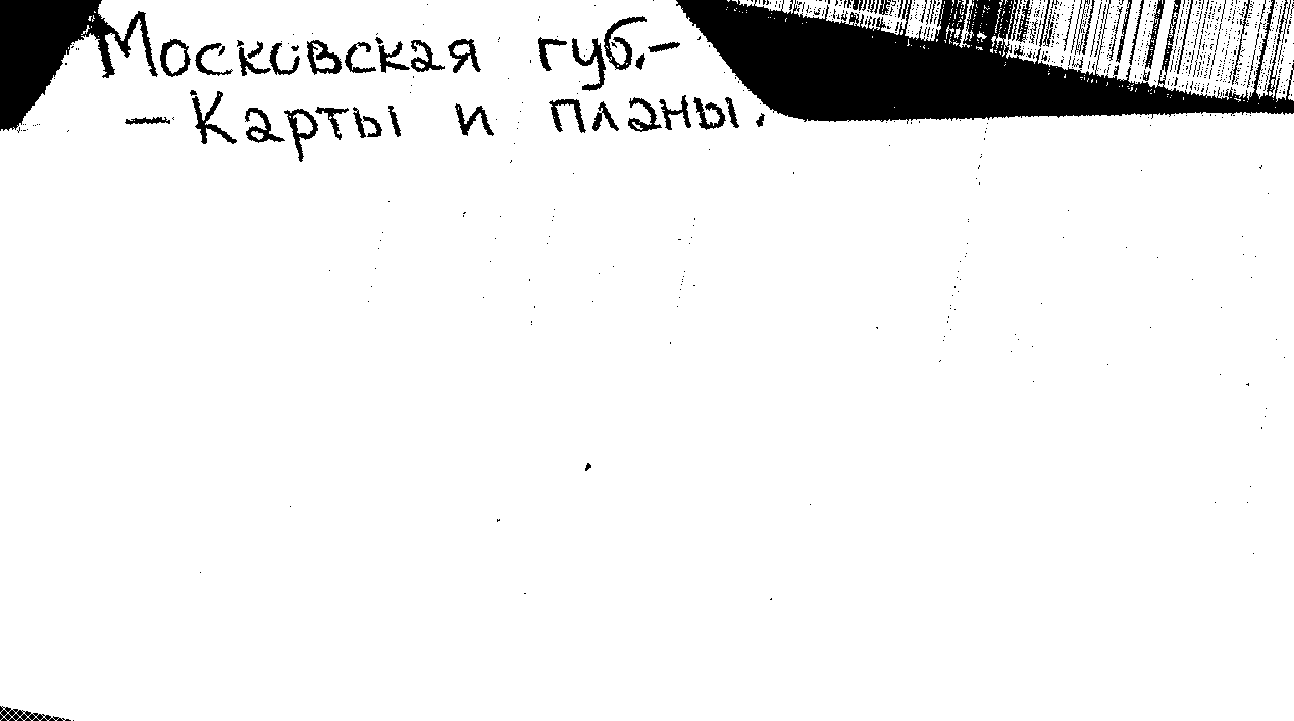 Московская губ.-
- Карты и планы.